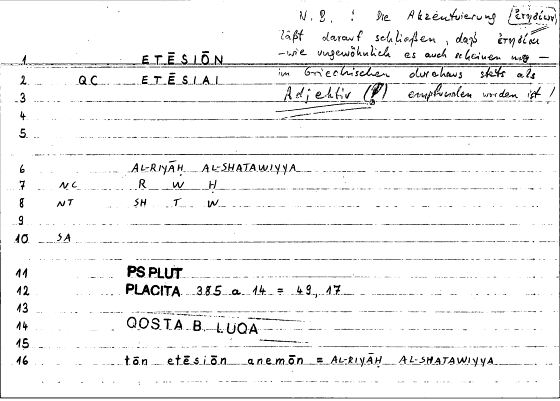 N.B.: Die Akzentuierung (ἐτησίων)
läßt darauf schließen, daß ἐτησίαι
– wie ungewöhnlich es auch scheinen mag –
im Griechischen durchaus stets als
Adjektiv (!) empfunden worden ist!
1 ETĒSIŌN
2 QC ETĒSIAI
3
4
5
6 AL-RIYĀḤ AL-SHATAWIYYA
7 NC R W Ḥ
8 NT SH T W
9
10 SA
11 PS PLUT
12 PLACITA 385 a 14 = 49, 17
13
14 QOSṬA B. LUQA
15
16 tōn etēsiōn anemōn = AL-RIYĀḤ AL-SHATAWIYYA